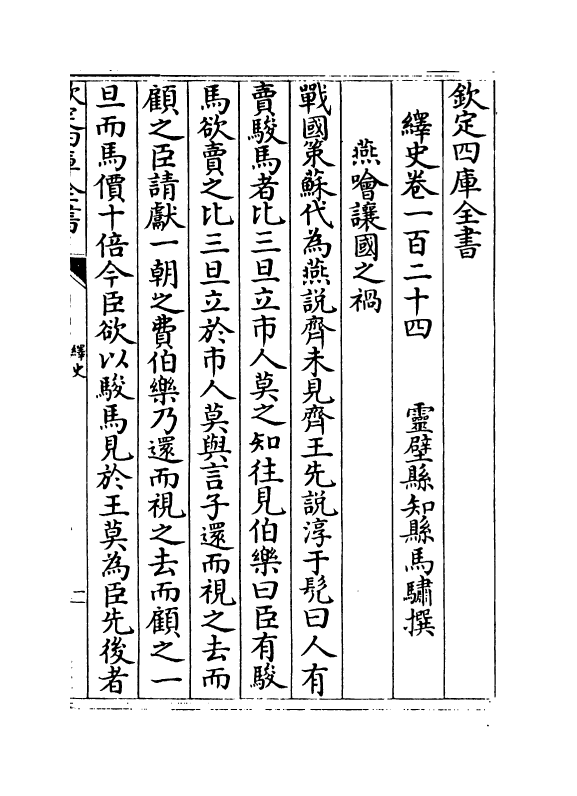 欽定四庫全書
繹史卷一百二十四　靈壁縣知縣馬驌撰
燕噲讓國之禍
戰國策蘇代為燕説齊未見齊王先説淳于髠曰人有
賣駿馬者比三旦立市人莫之知往見伯樂曰臣有駿
馬欲賣之比三旦立於市人莫與言子還而視之去而
顧之臣請獻一朝之費伯樂乃還而視之去而顧之一
旦而馬價十倍今臣欲以駿馬見於王莫為臣先後者
欽定四庫全書
繹史
二